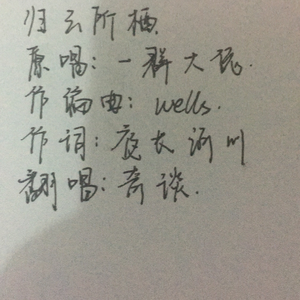 归云所栖
原唱：一群大佬.
作编曲：wells.
作词：夜长渐川
翻唱：奇谈.